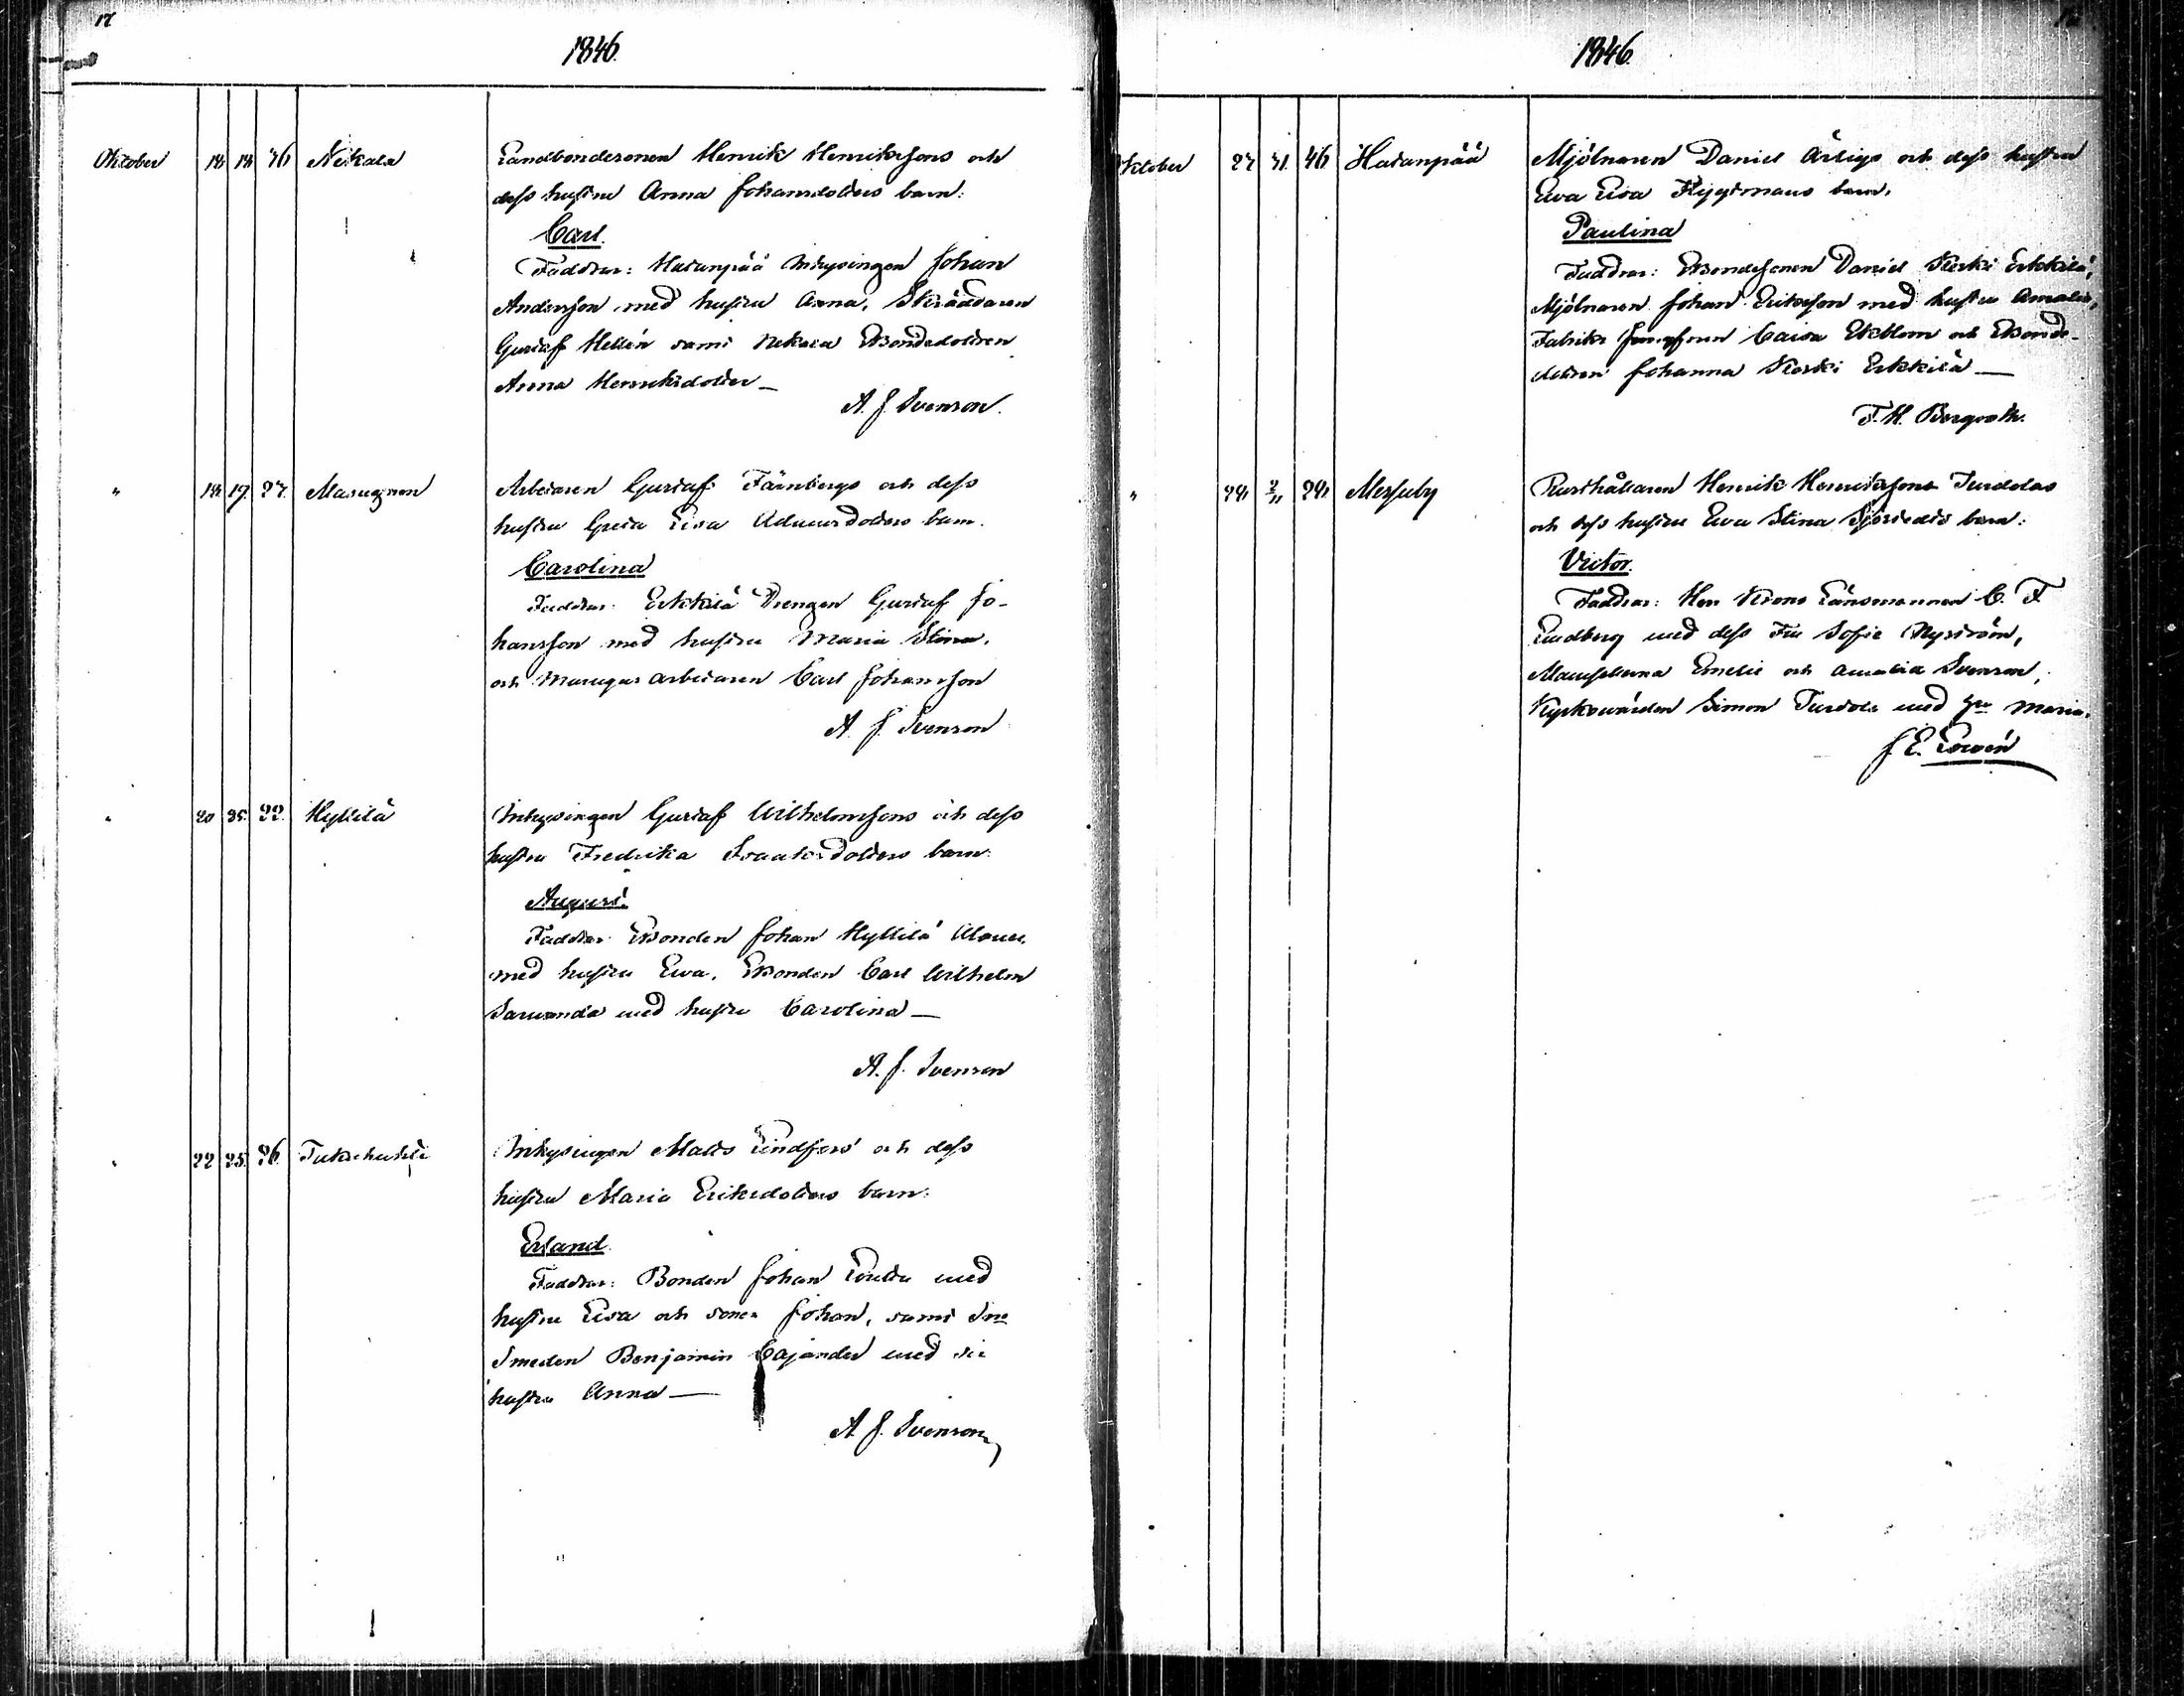 17
1846.
Oktober 18 18 36 Nekala Landbondesonen Henrik Henrikssons och
dess hustru Anna Johansdotters barn:
Carl.
Faddrar: Hatanpää Inhysingen Johan
Andersson med hustru Anna, Skräddaren
Gustaf Hellén samt Nekala Bondedottren
Anna Henriksdotter —
A. J. Svenson.
" 18 19. 27. Masugnen Arbetaren Gustaf Färnbergs och dess
hustru Greta Lisa Adamsdotters barn.
Carolina
Faddrar: Erkkilä Drengen Gustaf Jo-
hansson med hustru Maria Stina,
och Masugns arbetaren Carl Johansson
A. J. Svenson
" 20 25. 22. Hyllilä Inhysingen Gustaf Wilhelmssons och dess
hustru Fredrika Isaaksdotters barn:
August.
Faddrar: Bonden Johan Hyllilä
med hustru Ewa, Bonden Carl Wilhelm
med hustru Carolina —
A. J. Svenson
" 22 25. 36. Inhysingen Matts Lindfors och dess
hustru Maria Eriksdotters barn:
Erland.
Faddrar: Bonden Johan med
hustru Lisa och sonen Johan, samt
Smeden Benjamin Cajander med
hustru Anna —
A. J. Svenson
1846.
Oktober 27 31. 46 Hatanpää Mjölnaren Daniel Ärligs och dess hustru
Ewa Lisa Flygtmans barn,
Paulina
Faddrar: Bondesonen Daniel Keski Erkkilä,
Mjölnaren Johan Eriksson med hustru Amalia,
Fabriks Caisa Ekblom och Bonde-
dottren Johanna Keski Erkkilä —
F. H. Bergroth.
" 24 2/11 24 Messuby Rusthållaren Henrik Henrikssons Turdolas
och dess hustru Ewa Stina Sjöstedts barn:
Victor.
Faddrar: Herr Krono Länsmannen C. F.
Lindberg med dess Fru Sofie Nyström,
Mamsellerna Emelie och Amalia Svenson,
Kyrkowärden Simon Turdola med hu Maria.
J. E. Lowén